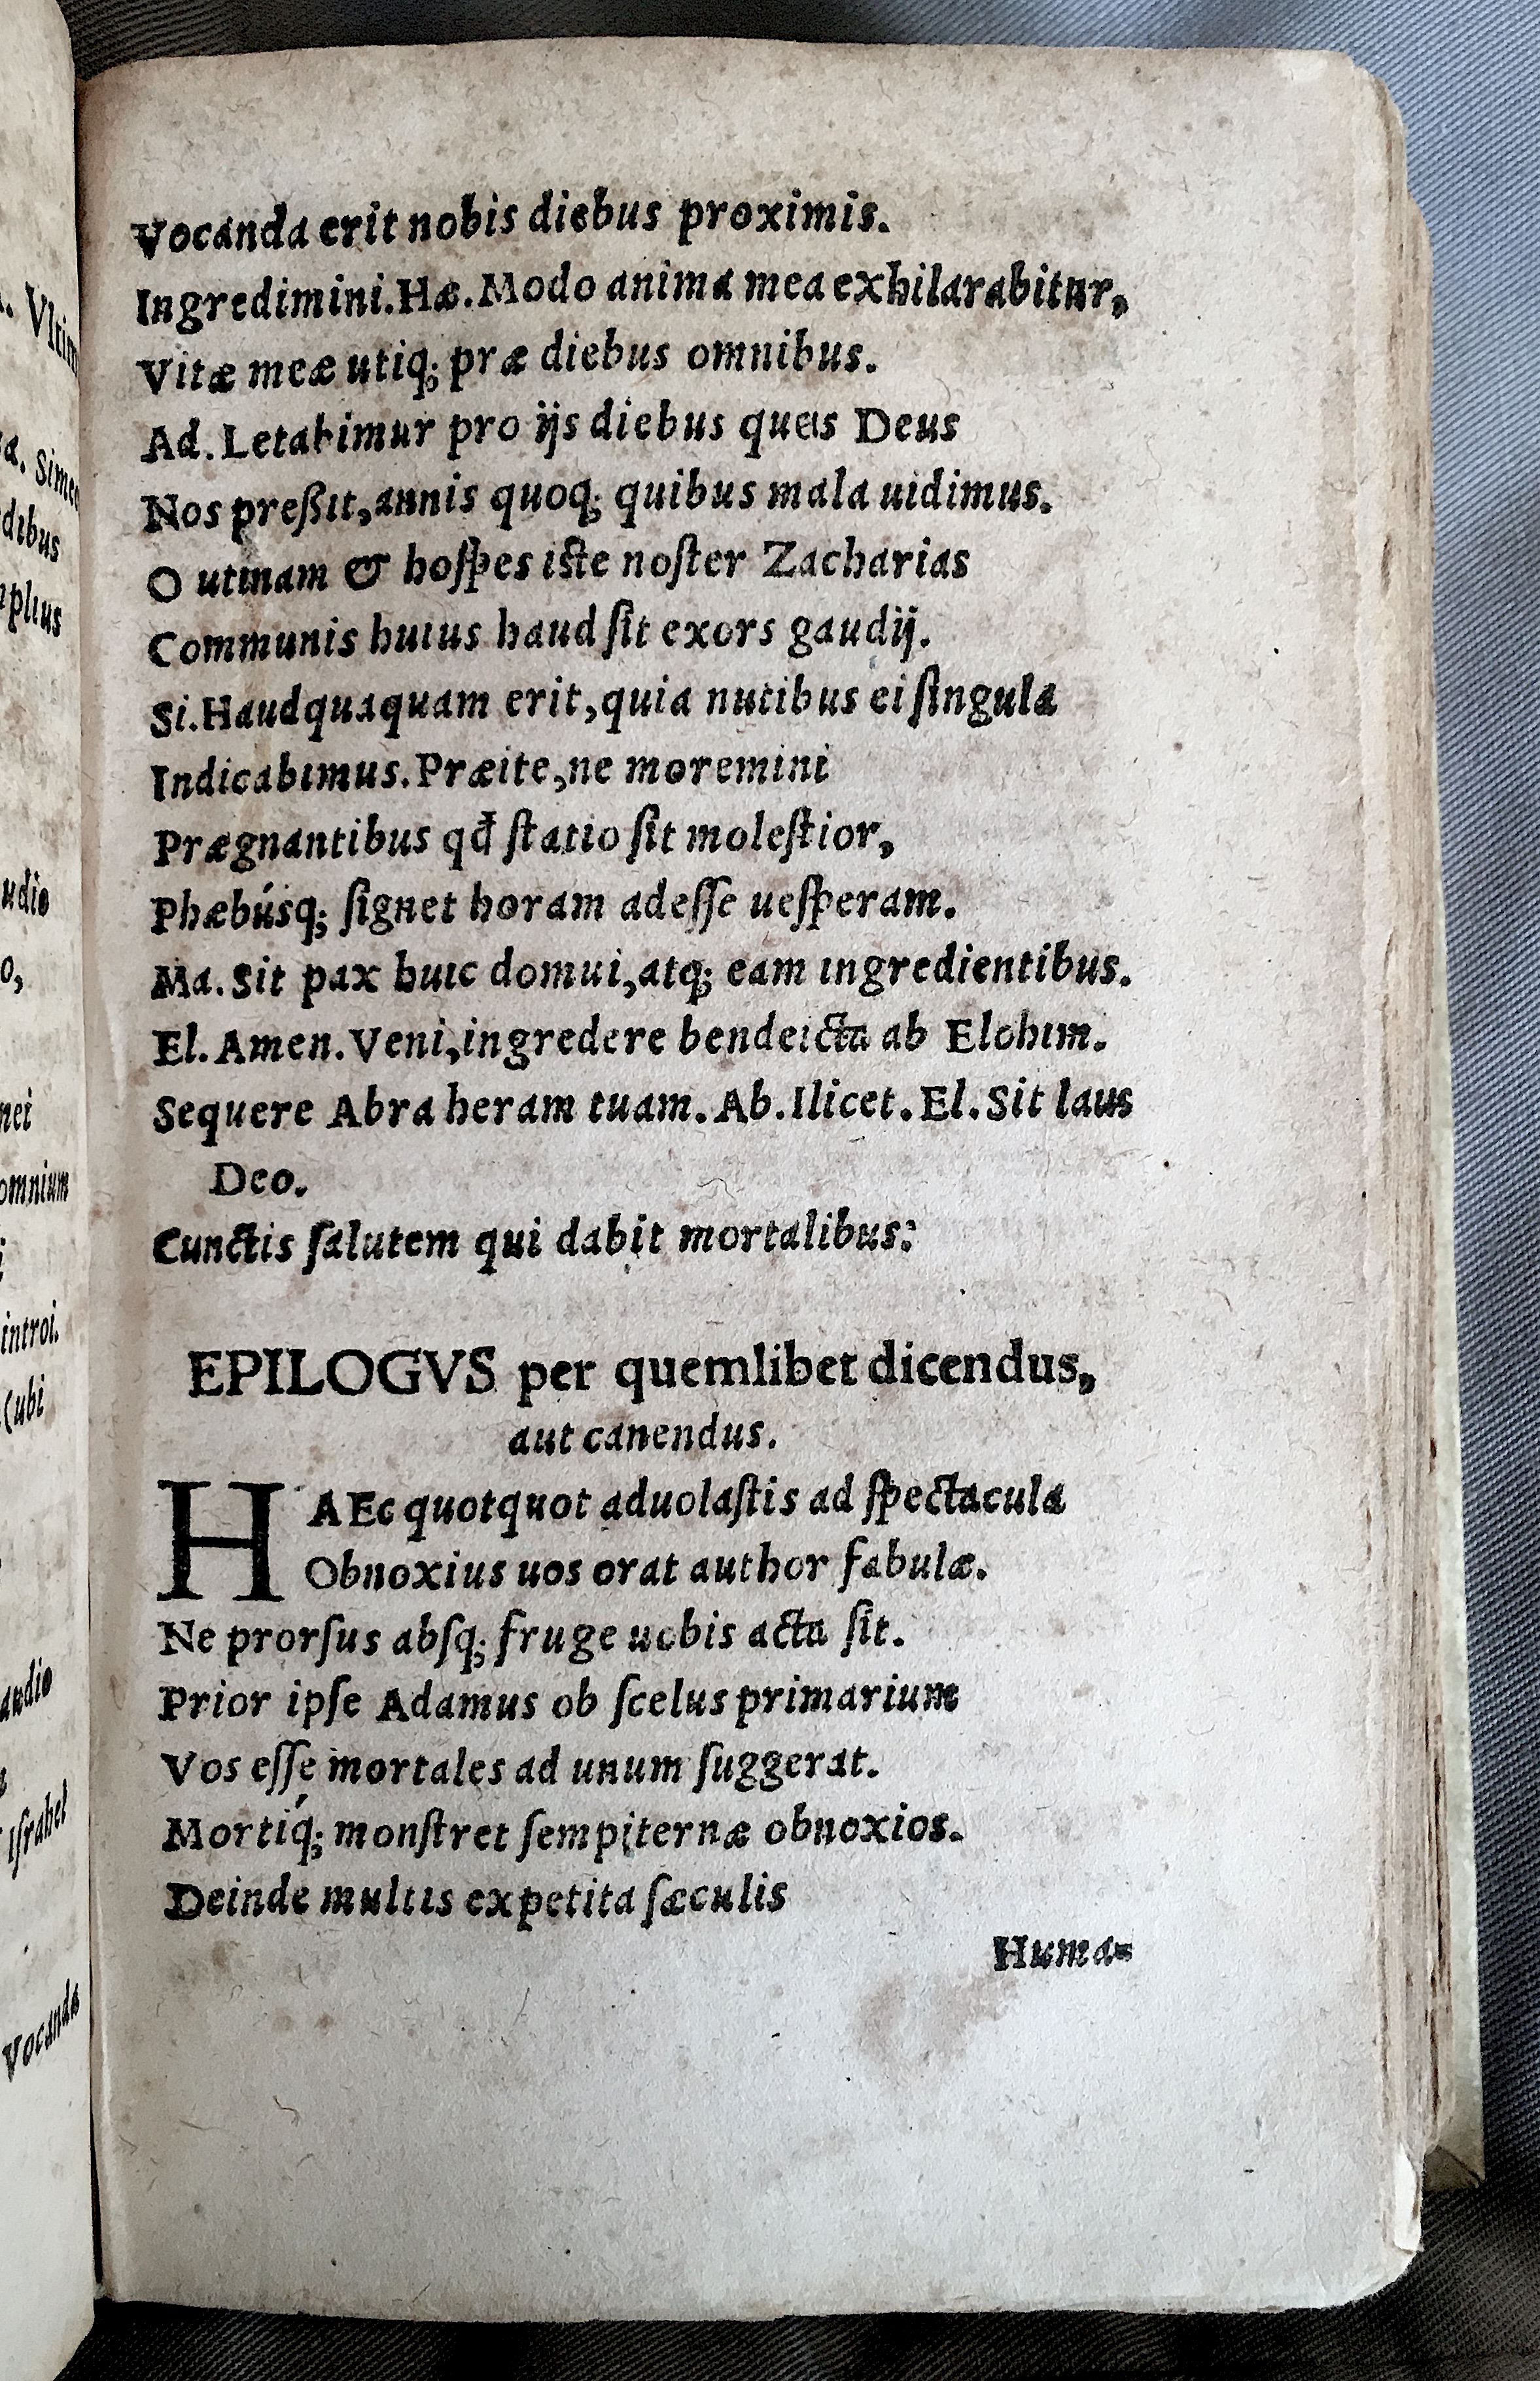 Vocanda erit nobis diebus proximis.
Ingredimini. Hæ. Modo anima mea exhilarabitur,
Vitæ meæ utiq; præ diebus omnibus.
Ad. Letabimur pro ijs diebus queis Deus
Nos preßit, annis quoq; quibus mala uidimus.
O utinam & hoſpes iſte noſter Zacharias
Communis huius haud ſit exors gaudij.
Si. Haudquaquam erit, quia nutibus ei ſingula
Indicabimus. Præite, ne moremini
Prægnantibus qđ ſtatio ſit moleſtior,
Phæbúsq; ſignet horam adeſſe ueſperam.
Ma. Sit pax huic domui, atq; eam ingredientibus.
El. Amen. Veni, ingredere bendeicta ab Elohim.
Sequere Abra heram tuam. Ab. Ilicet. El. Sit laus
Deo.
Cunctis ſalutem qui dabit mortalibus:
EPILOGVS per quemlibet dicendus,
aut canendus.
HAEc quotquot aduolaſtis ad ſpectacula
Obnoxius uos orat author fabulæ.
Ne prorſus abſq; fruge uobis acta ſit.
Prior ipſe Adamus ob ſcelus primarium
Vos eſſe mortales ad unum ſuggerat.
Mortiq́; monſtret ſempiternæ obnoxios.
Deinde multis expetita ſæculis
Huma=